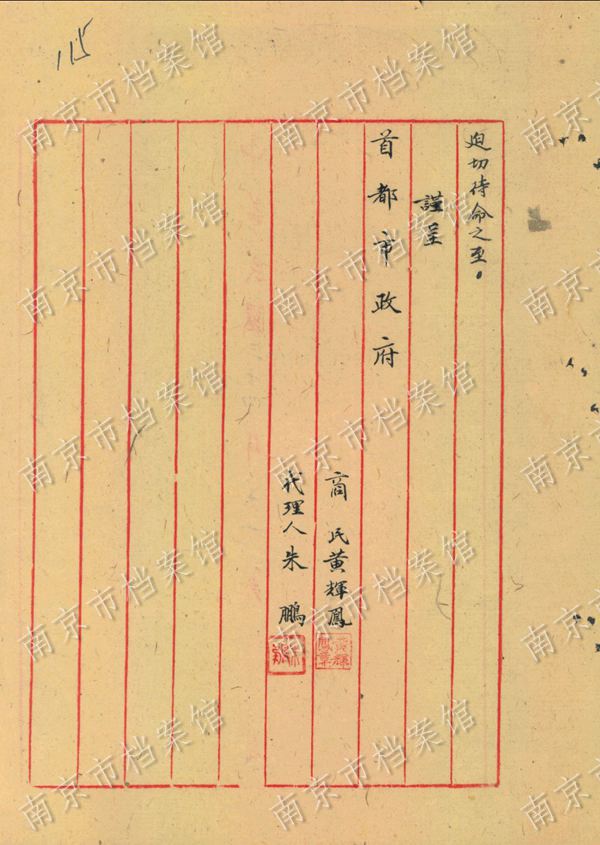 115
迫切待命之至。
謹呈
首都市政府
商民黃輝鳳
代理人朱鵬
南京市档案馆